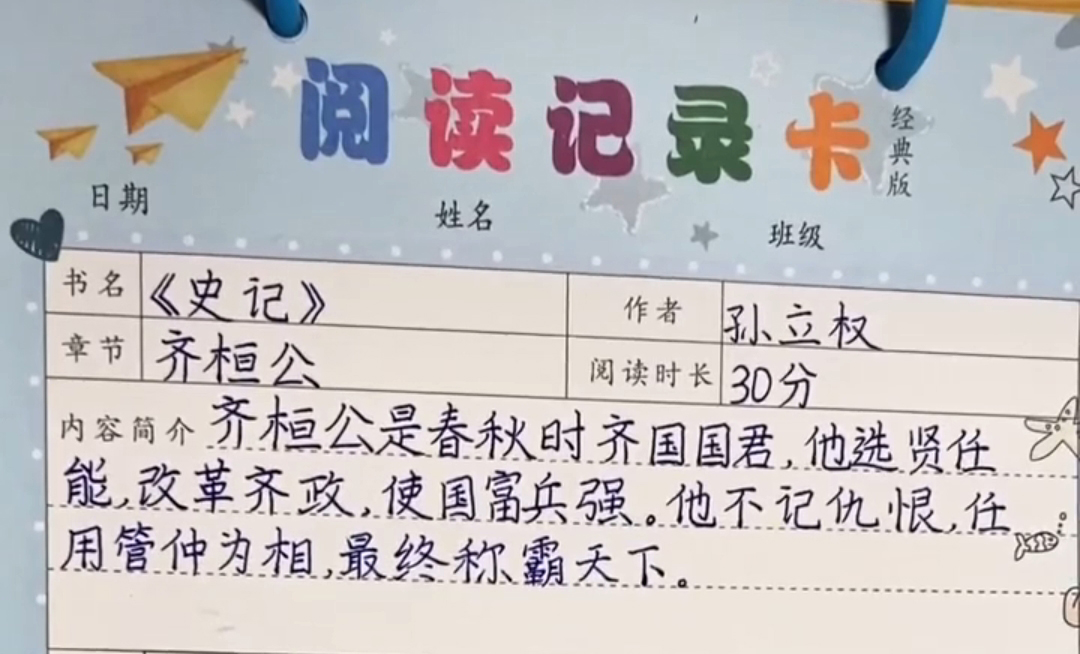 阅读记录卡 经典版
日期 姓名 班级
书名 《史记》 作者 孙立权
章节 齐桓公 阅读时长 30分
内容简介 齐桓公是春秋时齐国国君,他选贤任
能,改革齐政,使国富兵强。他不记仇恨,任
用管仲为相,最终称霸天下。